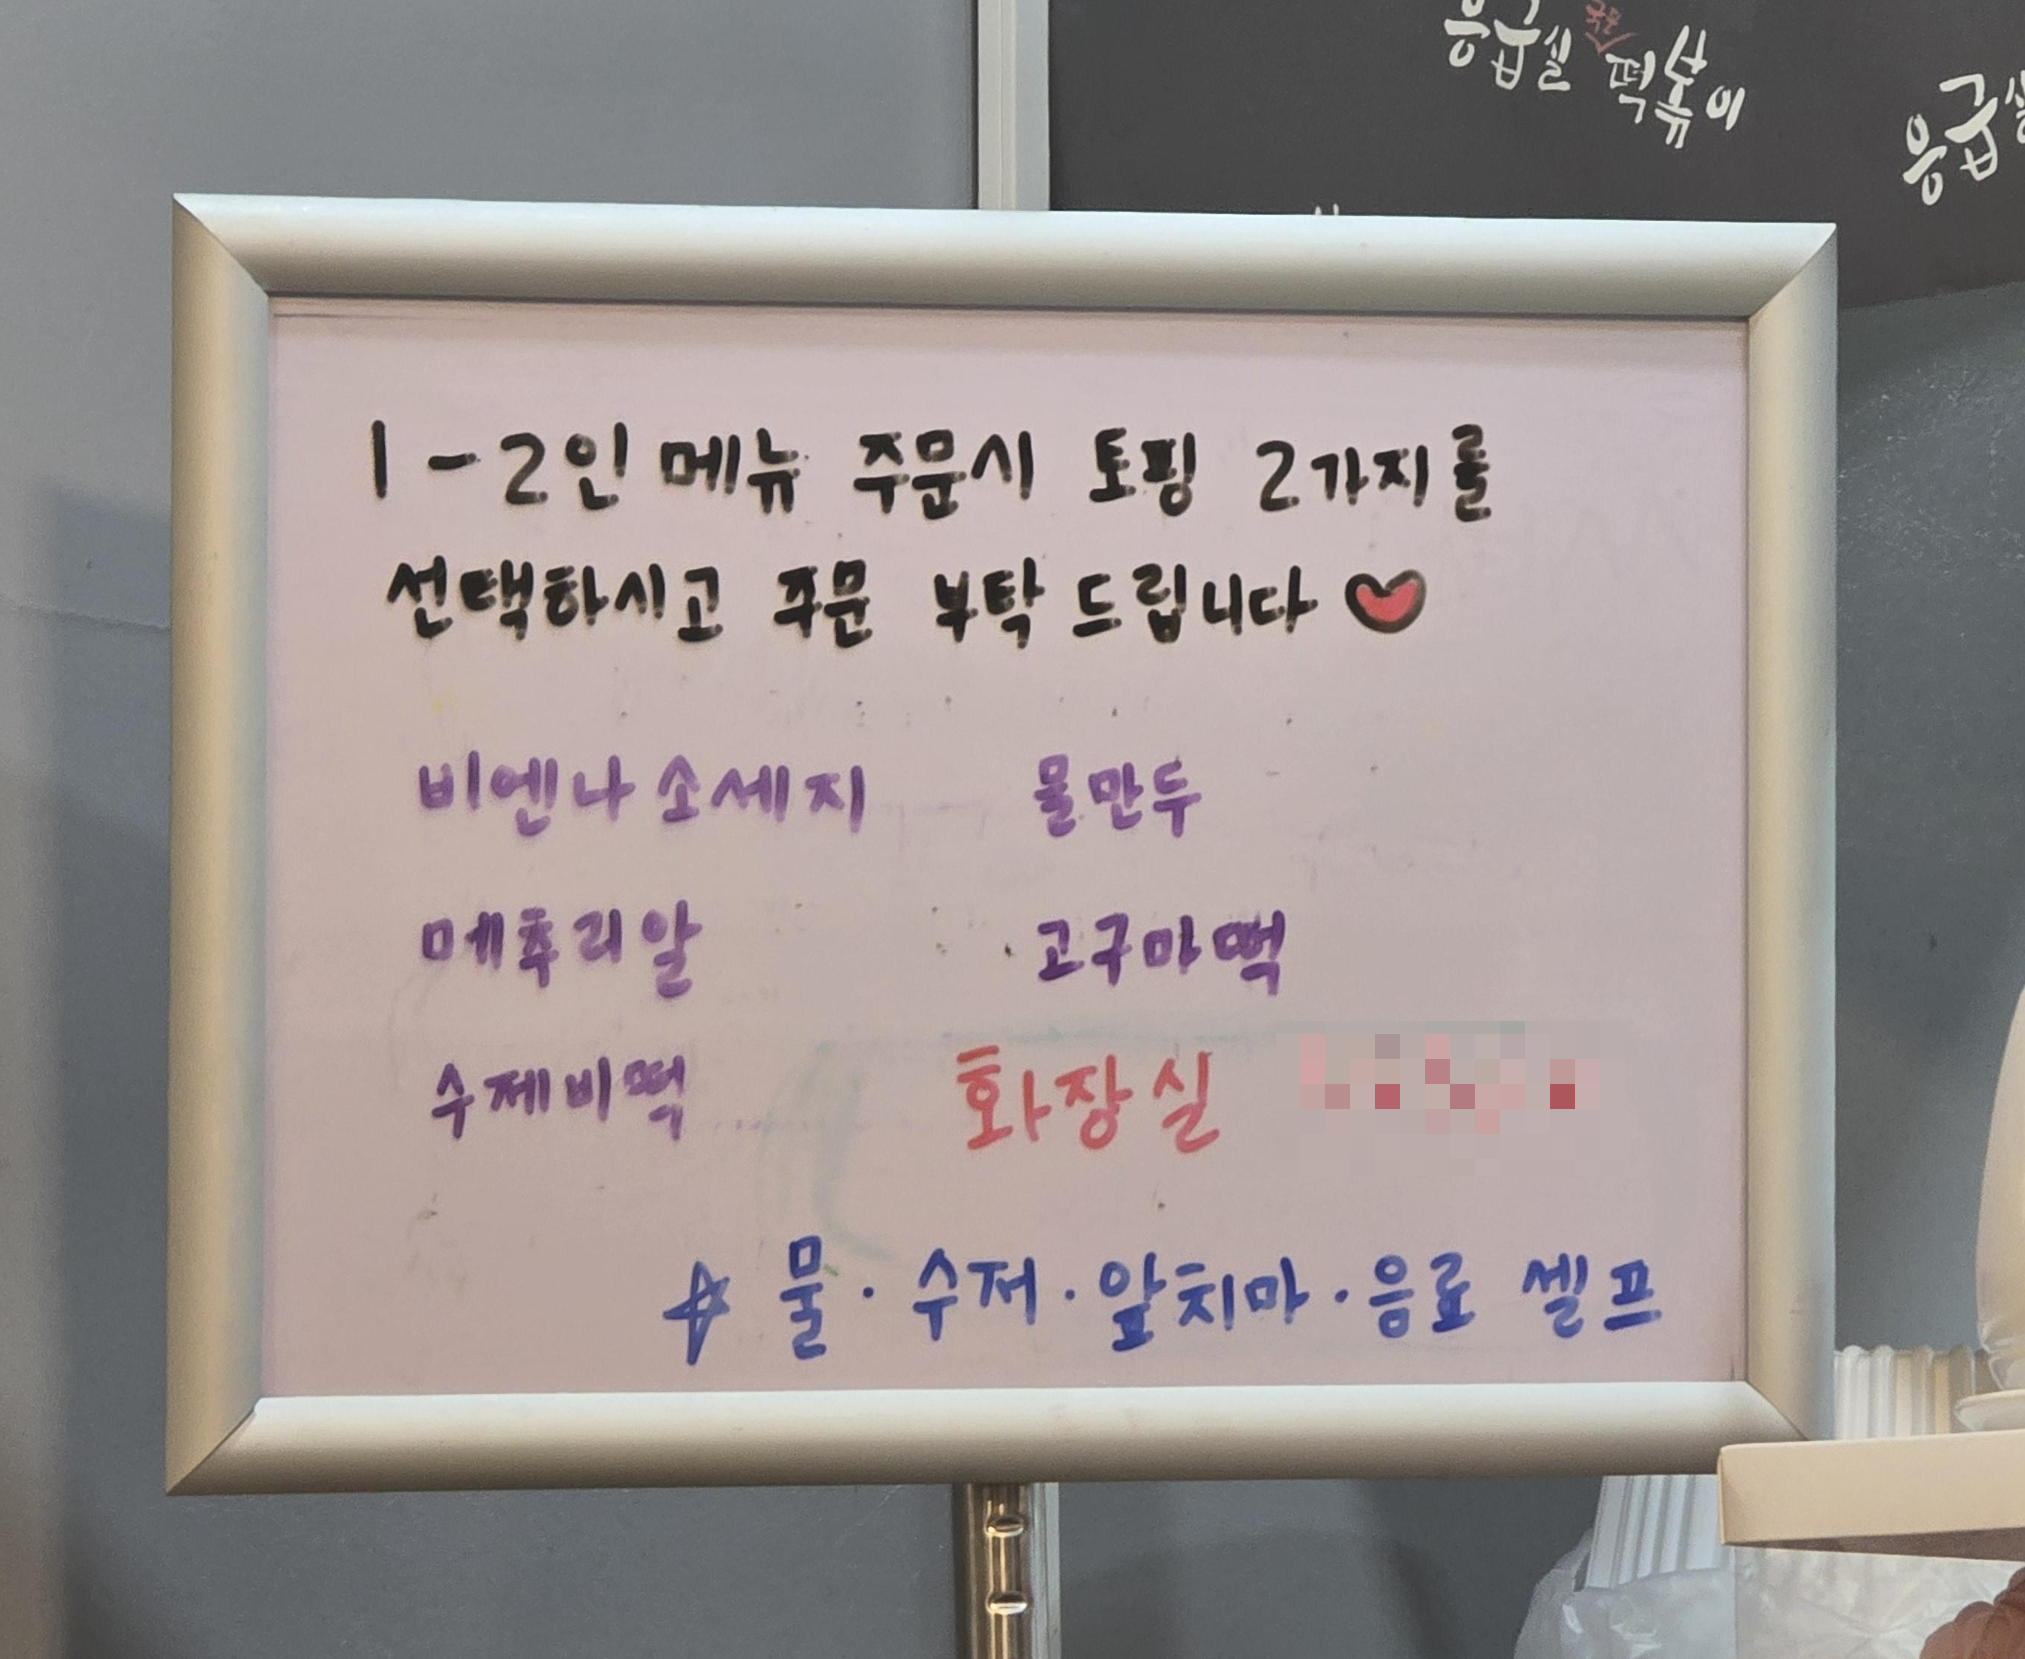 응급실 국물 떡볶이
응급실
1-2인 메뉴 주문시 토핑 2가지를
선택하시고 주문 부탁드립니다
비엔나소세지 물만두
메추리알 고구마떡
수제비떡 화장실
물·수저·앞치마·음료 셀프